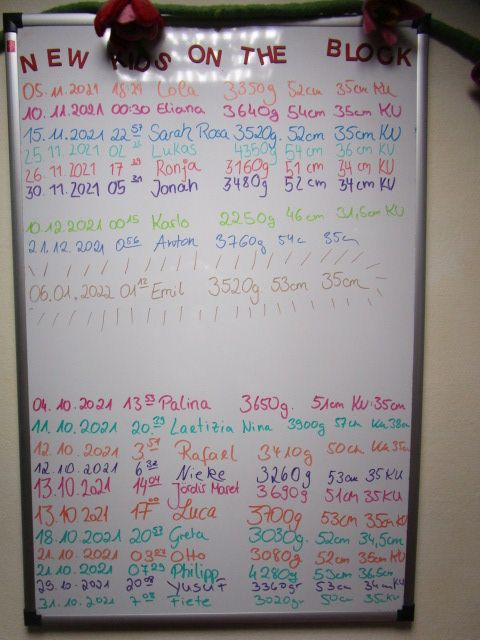 NEW KIDS ON THE BLOCK
05.11.2021 18:29 Lola 3350g 52cm 35cm KU
10.11.2021 00:30 Eliana 3640g 54cm 35cm KU
15.11.2021 22 57 Sarah Rosa 3520g. 52cm 35cm KU
25.11.2021 02 Lukas 4350g 54cm 36cm KU
26.11.2021 17 Ronja 3160g 51cm 34cm KU
30.11.2021 05 Jonah 3480g 52cm 34cm KU
10.12.2021 00 15 Karlo 2250g 46cm 31,5cm KU
21.12.2021 0 56 Anton 3760g 54c 35cm
06.01.2022 01 12 Emil 3520g 53cm 35cm
04.10.2021 13 53 Palina 3650g. 51cm KU:35cm
11.10.2021 20 29 Laetizia Nina 3900g 57cm Ku 38cm
12.10.2021 3 51 Rafael 3410g 50cm Ku 35cm
12.10.2021 6 32 Nieke 3260g 53cm 35KU
13.10.2021 14 04 Jördis Maret 3690g 51cm 35KU
13.10.2021 17 00 Luca 3700g 53cm 35cm KU
18.10.2021 20 53 Greta 3030g. 52cm 34,5cm
21.10.2021 03 Otto 3080g 52cm 35cm KU
21.10.2021 07 29 Philipp 4280g 53cm 36.5cm
29.10.2021 20 Yusuf 3360gr 53cm 34cm KU
31.10.2021 7 Fiete 3020gr 50cm 35KU